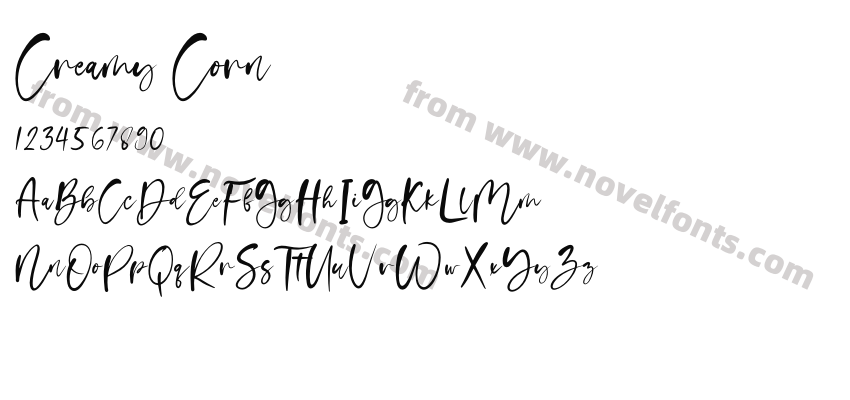 Creamy Corn
1234567890
AaBbCcDdEeFfGgHhIiJjKkLlMm
NnOoPpQqRrSsTtUuVvWwXxYyZz
from www.novelfonts.com
from www.novelfonts.com